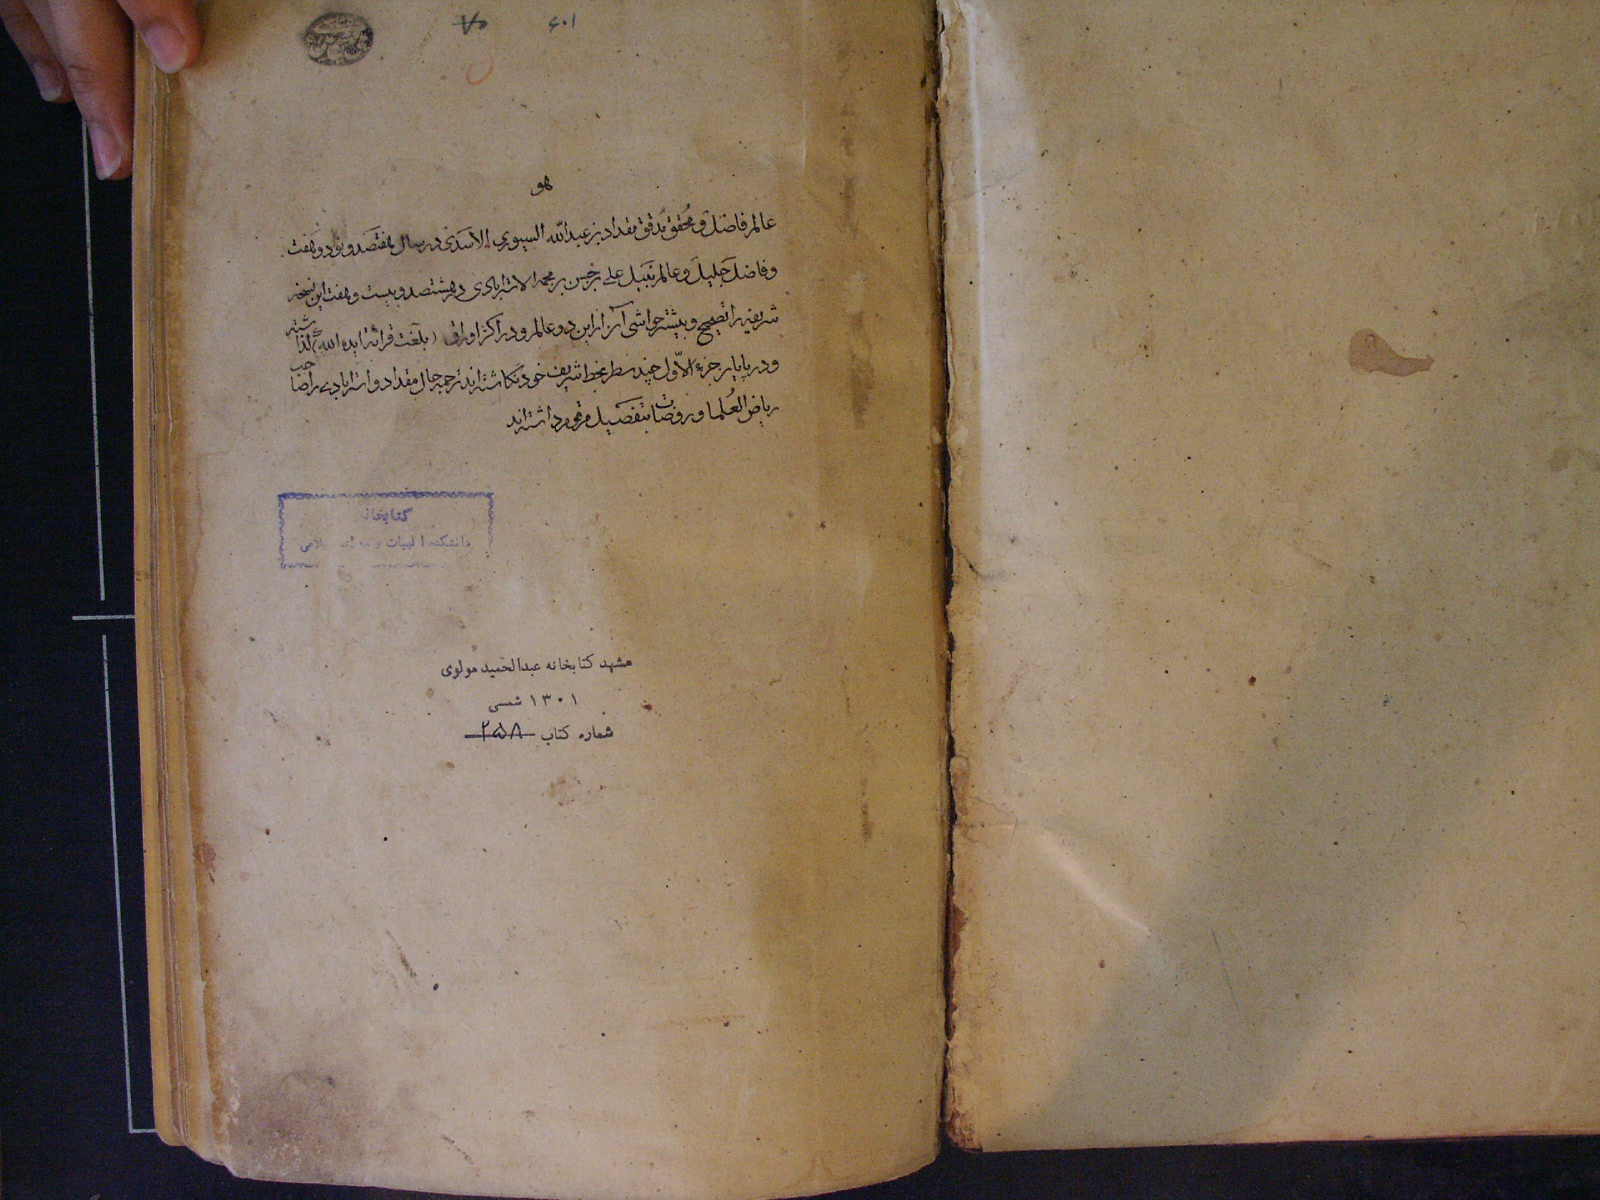 ۶۰۱ ۷۵
هو
عالم فاضل و محقق مدقق مقداد بن عبدالله السیوری الاسدی در سال هفتصد و نود و هفت
و فاضل جلیل و عالم نبیل علی بن حسن بن محمد الاسترابادی در هشتصد و بیست و هفت این نسخه
شریفه را تصحیح و بیشتر حواشی آن از این دو عالم و در اکثر اوراق (بلغت قرائة ایده الله)
و در پایان جزء الاول چند سطر بخط شریف خود نگاشته‌اند ترجمه حال مقداد و استرابادی را صاحب
ریاض العلما و روضات بتفصیل مرقوم داشته‌اند
کتابخانه
دانشکده الهیات و
مشهد کتابخانه عبدالحمید مولوی
۱۳۰۱ شمسی
شماره کتاب ۲۵۸